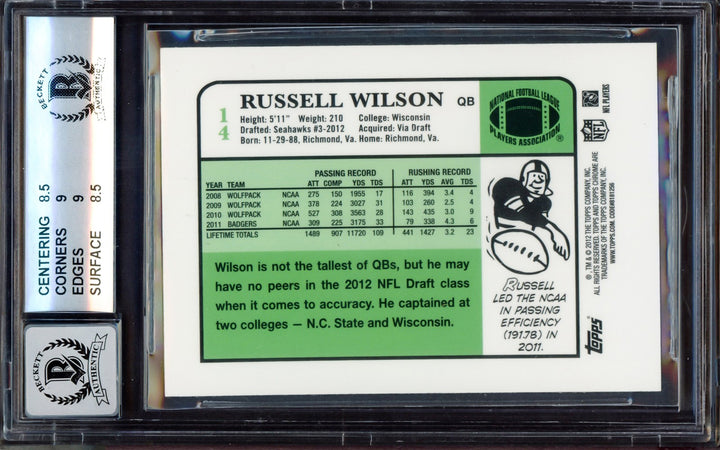 BECKETT
AUTHENTIC
CENTERING 8.5
CORNERS 9
EDGES 9
SURFACE 8.5
BECKETT
AUTHENTIC
14
RUSSELL WILSON QB
Height: 5'11" Weight: 210 College: Wisconsin
Drafted: Seahawks #3-2012 Acquired: Via Draft
Born: 11-29-88, Richmond, Va. Home: Richmond, Va.
NATIONAL FOOTBALL LEAGUE
PLAYERS ASSOCIATION
PASSING RECORD RUSHING RECORD
YEAR TEAM ATT COMP YDS TDS ATT YDS AVG TDS
2008 WOLFPACK NCAA 275 150 1955 17 116 394 3.4 4
2009 WOLFPACK NCAA 378 224 3027 31 103 260 2.5 4
2010 WOLFPACK NCAA 527 308 3563 28 143 435 3.0 9
2011 BADGERS NCAA 309 225 3175 33 79 338 4.3 6
LIFETIME TOTALS 1489 907 11720 109 441 1427 3.2 23
Wilson is not the tallest of QBs, but he may
have no peers in the 2012 NFL Draft class
when it comes to accuracy. He captained at
two colleges — N.C. State and Wisconsin.
RUSSELL
LED THE NCAA
IN PASSING
EFFICIENCY
(191.78) IN
2011.
NFL PLAYERS
NFL
®, TM & © 2012 THE TOPPS COMPANY, INC.
ALL RIGHTS RESERVED. TOPPS AND TOPPS CHROME ARE
TRADEMARKS OF THE TOPPS COMPANY, INC.
topps